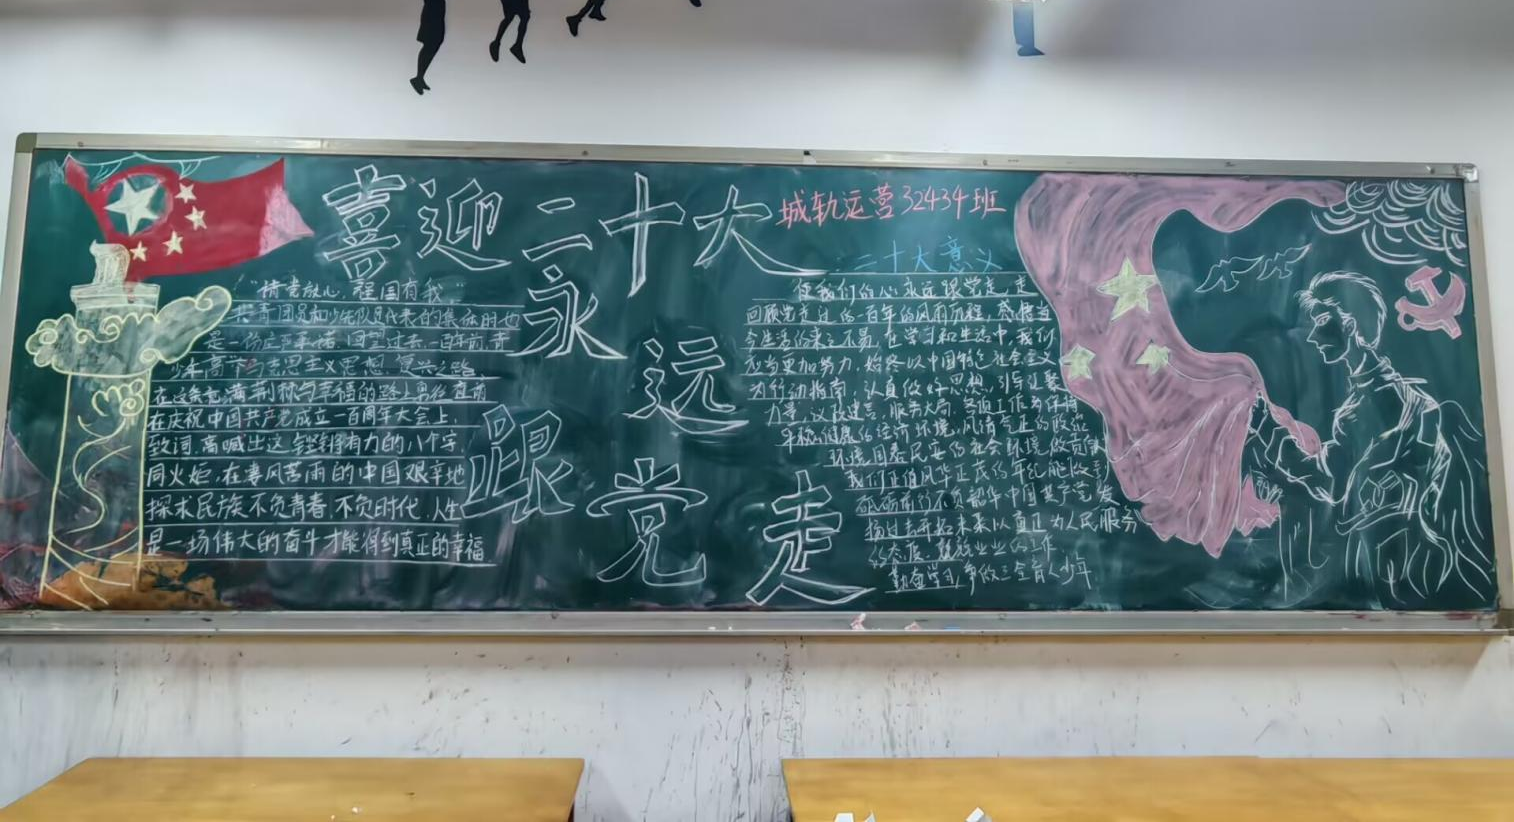 喜迎二十大
永远跟党走
城轨运营32434班
"请党放心,强国有我"
共青团员和少年队员代表的集体朗也
是一份庄严承诺,回望过去,一百年前,青
在这条充满荆棘与幸福的路上勇往直前
在庆祝中国共产党成立一百周年大会上
致词,高喊出这铿锵有力的八个字
同火炬,在凄风苦雨的中国艰辛地
探求民族不负青春,不负时代,人生
是一场伟大的奋斗才能得到真正的幸福
二十大意义
使我们的心永远跟党走,走
回顾党走过的一百年的风雨历程,感悟当
今生活的来之不易,在学习和生活中,我们
应当更加努力,始终以中国特色社会主义
为行动指南,认真做好思想,引导让聚
力量,议政建言,服务大局,各项工作为保持
平稳健康的经济环境,风清气正的政治
环境,国泰民安的社会环境做贡献
我们正值风华正茂的年纪能做到
扬过去开拓未来以真正为人民服务
的态度,兢兢业业的工作
勤奋学习,争做三全育人少年